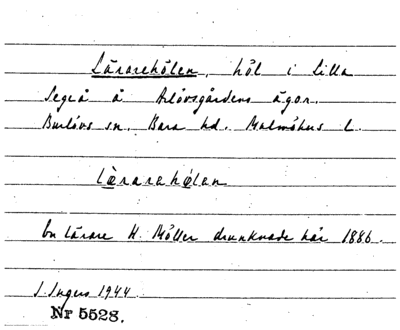 Lärarehölen, höl i Lilla
Segeå å Arlövsgårdens ägor.
Burlövs sn. Bara hd. Malmöhus l.
lærarehølen
En lärare H. Möller drunknade här 1886.
I. Ingers 1944.
Nr 5528.